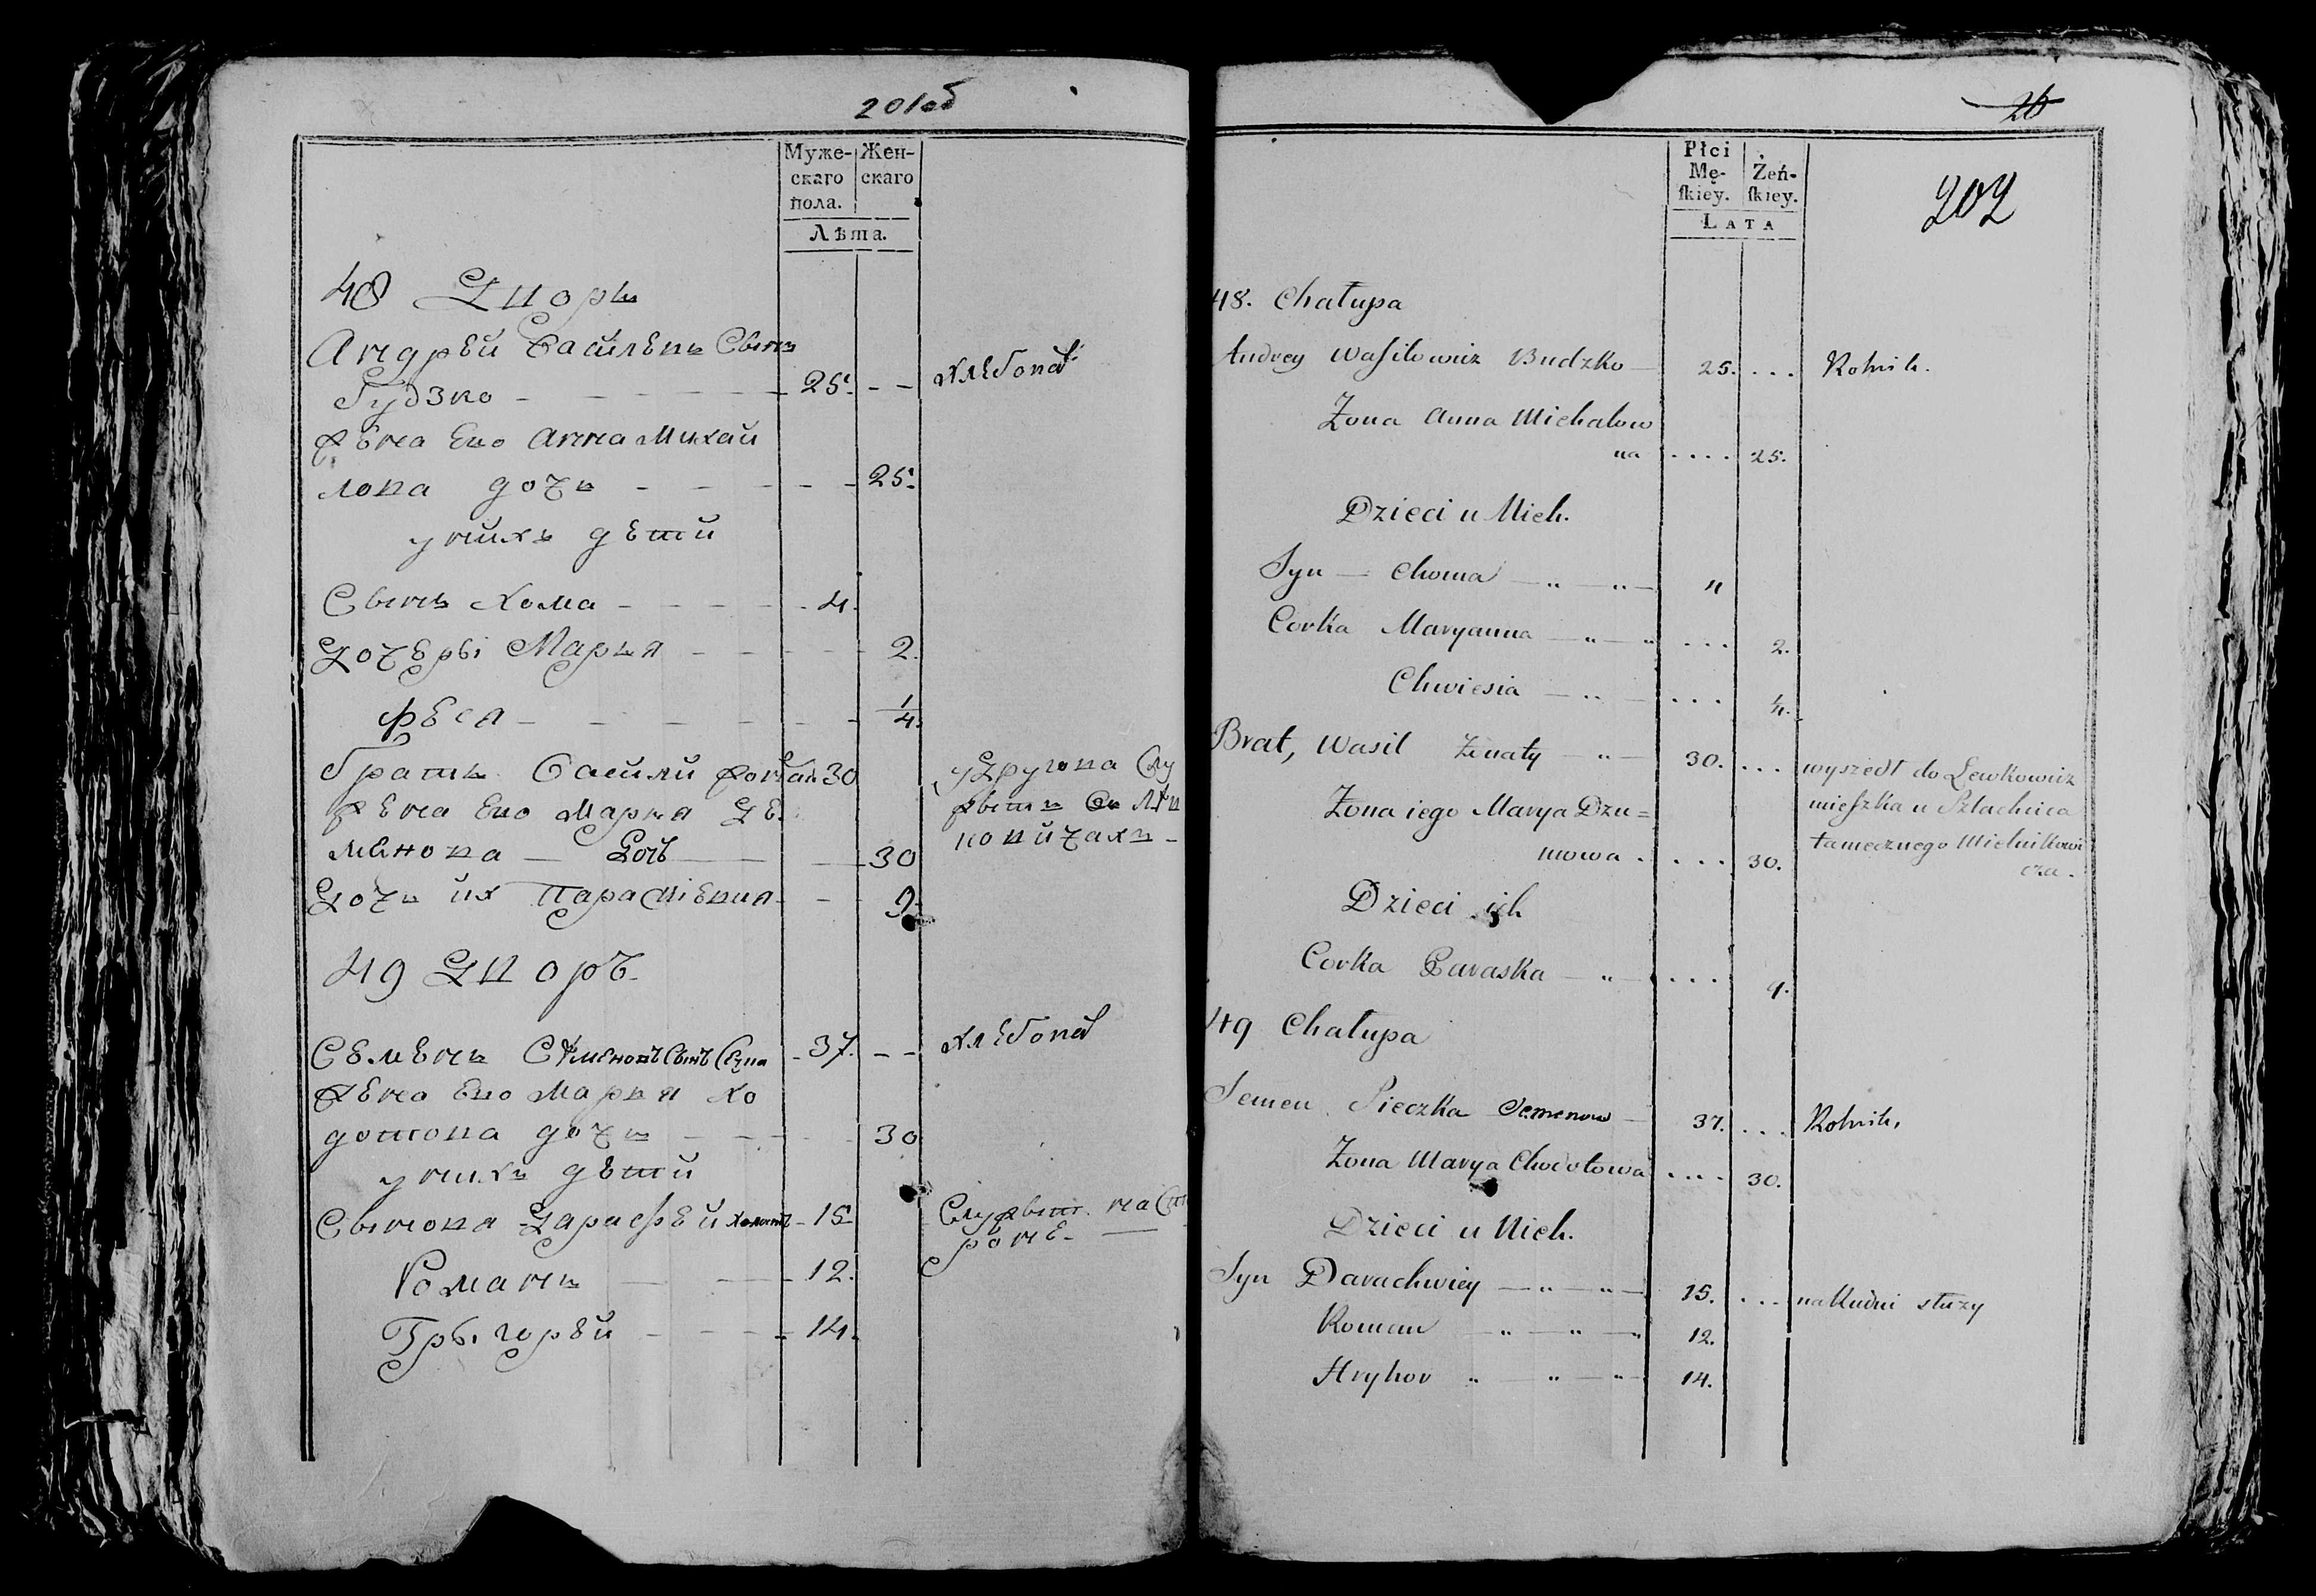 201об
Муже-
скаго
пола.
Жен-
скаго
Лѣта.
48 Дворъ
Андрей Васильевъ Сынъ
Будзко 25. - -
хлебопа
жена Ево Анна Михай
лова дочь 25.
у нихъ дети
Сынъ Хома 4.
Дочери Марья 2.
Феся 1/4.
Братъ Василий женат 30
у Другова Слу
жена Ево Марья Де
житъ Въ Лев
минова Доч 30
ковичахъ
Дочь их Парасковия 9.
49 Дворъ
Семенъ Семеновъ Сынъ 37. - -
хлебопа
жена Ево Марья Хо
дотова дочь 30
у нихъ дети
Сынова Дарафей холост 15
Служит на Сто
роне.
Романъ 12.
Григорей 14.
26
202
Płci
Mę-
ſkiey.
Żeń-
ſkiey.
LATA
48. Chałupa
Andrey Wasilowicz Budzko 25. ... Rolnik.
Żona Anna Michałow
na .... 25.
Dzieci u Nich.
Syn — Choma 4
Corka Maryanna ... 2.
Chwiesia ... 4.
Brat, Wasil Żonaty 30. ... wyszedł do Lewkowicz
mieszka u Szlachcica
Żona iego Marya Dzu=
tamecznego Mielnikowi
mowa .... 30.
cza.
Dzieci ich
Corka Paraska ... 9.
49 Chałupa
Semen Sieczka Semenow 37. ... Rolnik,
Żona Marya Chodotowa .... 30.
Dzieci u Nich.
Syn Darachwiey 15. ... na Rudni służy
Roman 12.
Hryhor 14.